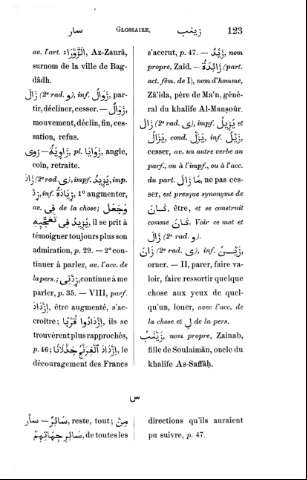 سار GLOSSAIRE. زينب 123
av. l'art. الزَّوْرَآءُ, Az-Zaurâ,
surnom de la ville de Bag-
dâdh.
زَالَ (2e rad. و), inf. زَوَالٌ, par-
tir, décliner, cesser. — زَوَالٌ,
mouvement, déclin, fin, ces-
sation, refus.
زَاوِيَةٌ — زوى pl. زَوَايَا, angle,
coin, retraite.
زَادَ (2e rad. ى), impf. يَزِيدُ, imp.
زِدْ, inf. زِيَادَةٌ, 1° augmenter,
av. فِى de la chose; وَجَعَلَ
يَزِيدُ فِى تَعَجُّبِهِ, il se prit à
témoigner toujours plus son
admiration, p. 29. — 2° con-
tinuer à parler, av. l'acc. de
la pers.; زِدْنِى, continue à me
parler, p. 35. — VIII, parf.
اِزْدَادَ, être augmenté, s'ac-
croître; اِزْدَادُوا, ils se
trouvèrent plus rapprochés,
p. 46; le
découragement des Francs
s'accrut, p. 47. — زَيْدٌ, nom
propre, Zaid. — زَائِدَةُ (part.
act. fém. de I), nom d'homme,
Zâ'ida, père de Ma'n, géné-
ral du khalife Al-Manṣoûr.
زَالَ (2e rad. ى), impf. يَزِيلُ et
يَزَالُ, cond. يَزَلْ, inf. زَيْلٌ,
cesser, av. un autre verbe au
parf., ou à l'impf., ou à l'acc.
du part. مَا زَالَ ne pas ces-
ser, est presque synonyme de
كَانَ, être, et se construit
comme كَانَ. Voir ce mot et
زَالَ (2e rad. و).
زَانَ (2e rad. ى), inf. زَيْنٌ,
orner. — II, parer, faire va-
loir, faire ressortir quelque
chose aux yeux de quel-
qu'un, louer, avec l'acc. de
la chose et لِ de la pers.
زَيْنَبُ, nom propre, Zainab,
fille de Soulaimân, oncle du
khalife As-Saffâḥ.
س
سَائِرٌ — سأر, reste, tout; مِنْ
سَائِرِ جِهَاتِهِمْ, de toutes les
directions qu'ils auraient
pu suivre, p. 47.